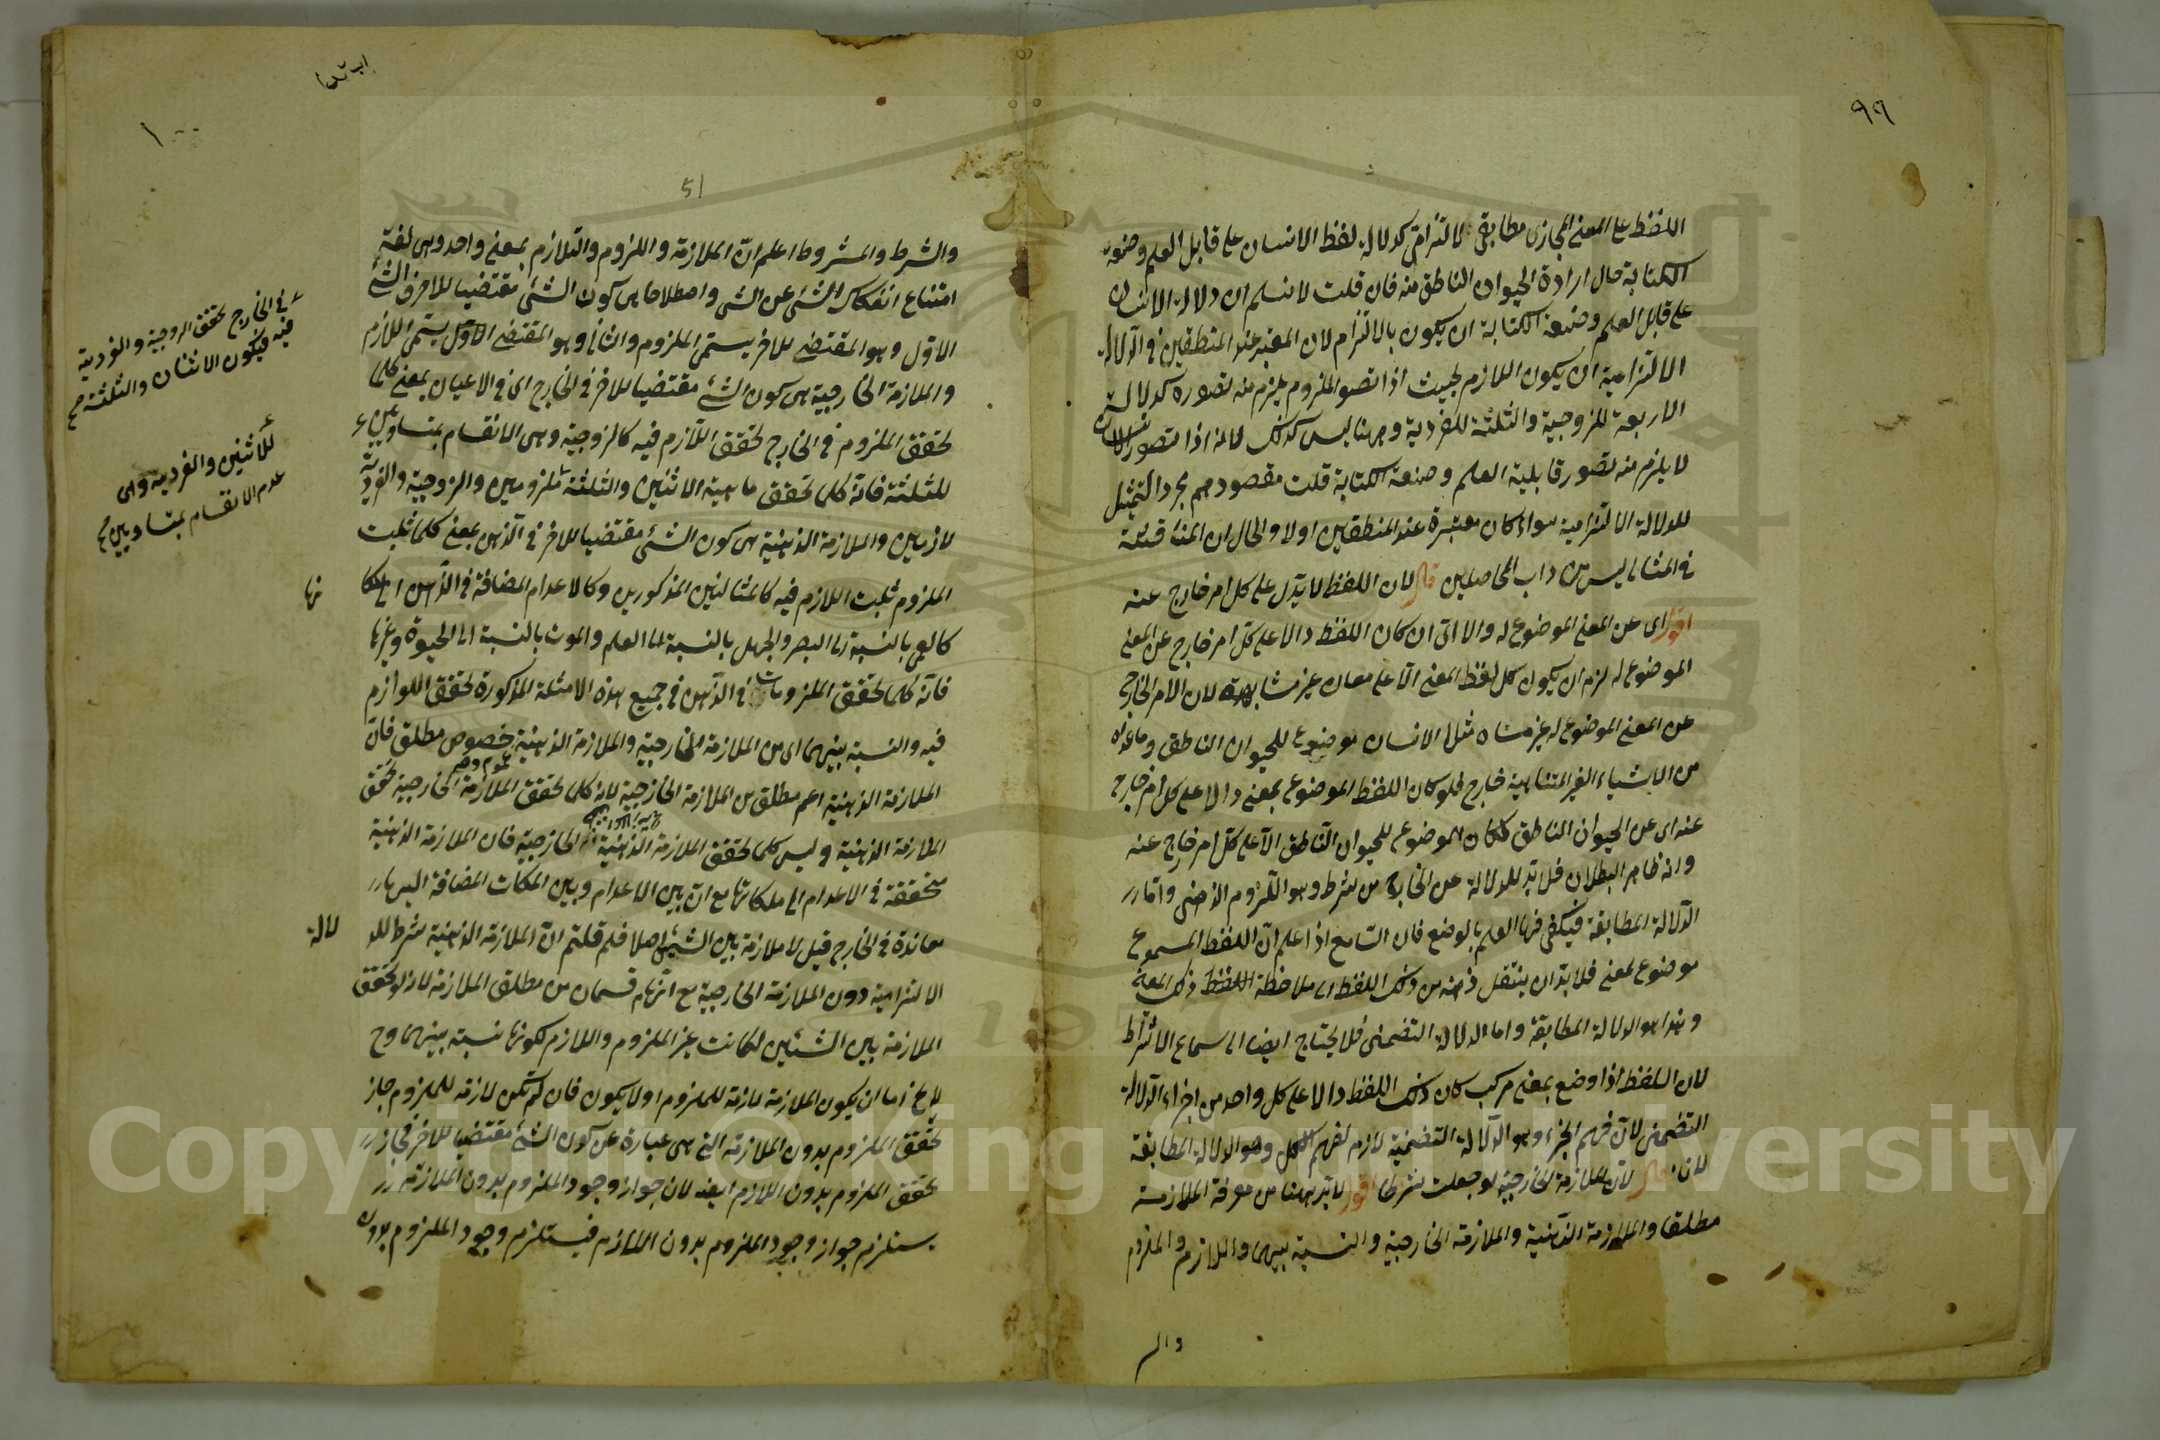 ٩٩
اللفظ على المعنى المجازى مطابقى لا التزامى كدلالة لفظ الانسان على قابل العلم وصنعة
الكتابة حال ارادة الحيوان الناطق منه فان قلت لا نسلم ان دلالة الانسان
على قابل العلم وصنعة الكتابة ان يكون بالالتزام لان المعتبر عند المنطقيين فى الدلالة
الالتزامية ان يكون اللازم بحيث اذا تصور الملزوم يلزم منه تصوره كدلالة
الاربعة للزوجية والثلثة للفردية وههنا ليس كذلك لانه اذا تصور الانسان
لا يلزم منه تصور قابلية العلم وصنعة الكتابة قلت مقصودهم مجرد التمثيل
للدلالة الالتزامية سواء كان معتبرة عند المنطقيين اولا والحال ان المناقشة
فى المثال ليس من داب المحاصلين قال لان اللفظ لا يدل على كل امر خارج عنه
اقول اى عن المعنى الموضوع له والا اى ان كان اللفظ دالا على كل امر خارج عن المعنى
الموضوع له لزم ان يكون كل لفظ لمعنى دالا على معان غير متناهية لان الامر الخارج
عن المعنى الموضوع له غير متناه مثلا الانسان موضوع للحيوان الناطق وما عداه
من الاشياء الغير المتناهية خارج فلو كان اللفظ الموضوع بمعنى دالا على كل امر خارج
عنه اى عن الحيوان الناطق لكان الموضوع للحيوان الناطق دالا على كل امر خارج عنه
وانه ظاهر البطلان فلا بد للدلالة عن الخارج من شرط وهو اللزوم الذهنى واما
الدلالة المطابقة فيكفى فيها العلم بالوضع فان السامع اذا علم ان اللفظ المسموع
موضوع لمعنى فلا بد ان ينتقل ذهنه من ذلك اللفظ الى ملاحظة اللفظ ذلك المعنى
وهذا هو الدلالة المطابقة واما الدلالة التضمنى فلا يحتاج ايضا الى سماع الاشتراط
لان اللفظ اذا وضع بمعنى مركب كان ذلك اللفظ دالا على كل واحد من اجزاء الدلالة
التضمنى لان فهم الجزء وهو الدلالة التضمنية لازم لفهم الكل وهو الدلالة المطابقة
لان قال لان الملازمة الخارجية لو جعلت شرطا اقول لا بد ههنا من معرفة الملازمة
مطلقا والملازمة الذهنية والملازمة الخارجية والنسبة بينهما واللازم والملزوم
والشرط
١٠٠
51
والشرط والمشروط اعلم ان الملازمة واللزوم والتلازم بمعنى واحد وهى لغة
امتناع انفكاك الشئ عن الشئ واصطلاحا هى كون الشئ مقتضيا للاخر فالشئ
الاول وهو المقتضى للاخر يسمى الملزوم والثانى وهو المقتضى الاول يسمى اللازم
والملازمة الخارجية هى كون الشئ مقتضيا للاخر فى الخارج اى فى الاعيان بمعنى كلما
تحقق الملزوم فى الخارج تحقق اللازم فيه كالزوجية وهى الانقسام بمتساويين
للثلثة فانه كلما تحقق ماهية الاثنين والثلثة ملزومين والزوجية والفردية
لازمين والملازمة الذهنية هى كون الشئ مقتضيا للاخر فى الذهن بمعنى كلما ثبت
الملزوم ثبت اللازم فيه كالمثالين المذكورين وكالاعدام المضافة فى الذهن الى ملكا
تها
كالعمى بالنسبة الى البصر والجهل بالنسبة الى العلم والموت بالنسبة الى الحيوة وغيرها
فانه كلما تحقق الملزومات فى الذهن فى جميع هذه الامثلة المذكورة تحقق اللوازم
فيه والنسبة بينهما اى بين الملازمة الخارجية والملازمة الذهنية خصوص مطلق فان
الملازمة الذهنية اعم مطلق من الملازمة الخارجية لانه كلما تحقق الملازمة الخارجية تحقق
الملازمة الذهنية وليس كلما تحقق الملازمة الذهنية الخارجية فان الملازمة الذهنية
متحققة فى الاعدام الى ملكاتها مع ان بين الاعدام وبين الملكات المضافة اليها
معاندة فى الخارج قيل لا ملازمة بين الشيئين اصلا فلم قلتم ان الملازمة الذهنية شرط للد
لالة
الالتزامية دون الملازمة الخارجية مع انهما قسمان من مطلق الملازمة لانه لو تحقق
الملازمة بين الشيئين لكانت غير الملزوم واللازم لكونها نسبة بينهما وح
لا يخ اما ان يكون الملازمة لازمة للملزوم او لا يكون فان لم تكن لازمة للملزوم جاز
تحقق الملزوم بدون الملازمة التى هى عبارة عن كون الشئ مقتضيا للاخر فجاز
تحقق الملزوم بدون اللازم ايضا لان جواز وجود الملزوم بدون الملازمة
يستلزم جواز وجود الملزوم بدون اللازم فيستلزم وجود الملزوم بدون
فى الخارج تحقق الزوجية والفردية
فيه فيكون الاثنان والثلثة صح
للاثنين والفردية وهى
عدم الانقسام بمتساويين صح
Copyright © King Saud University
1957